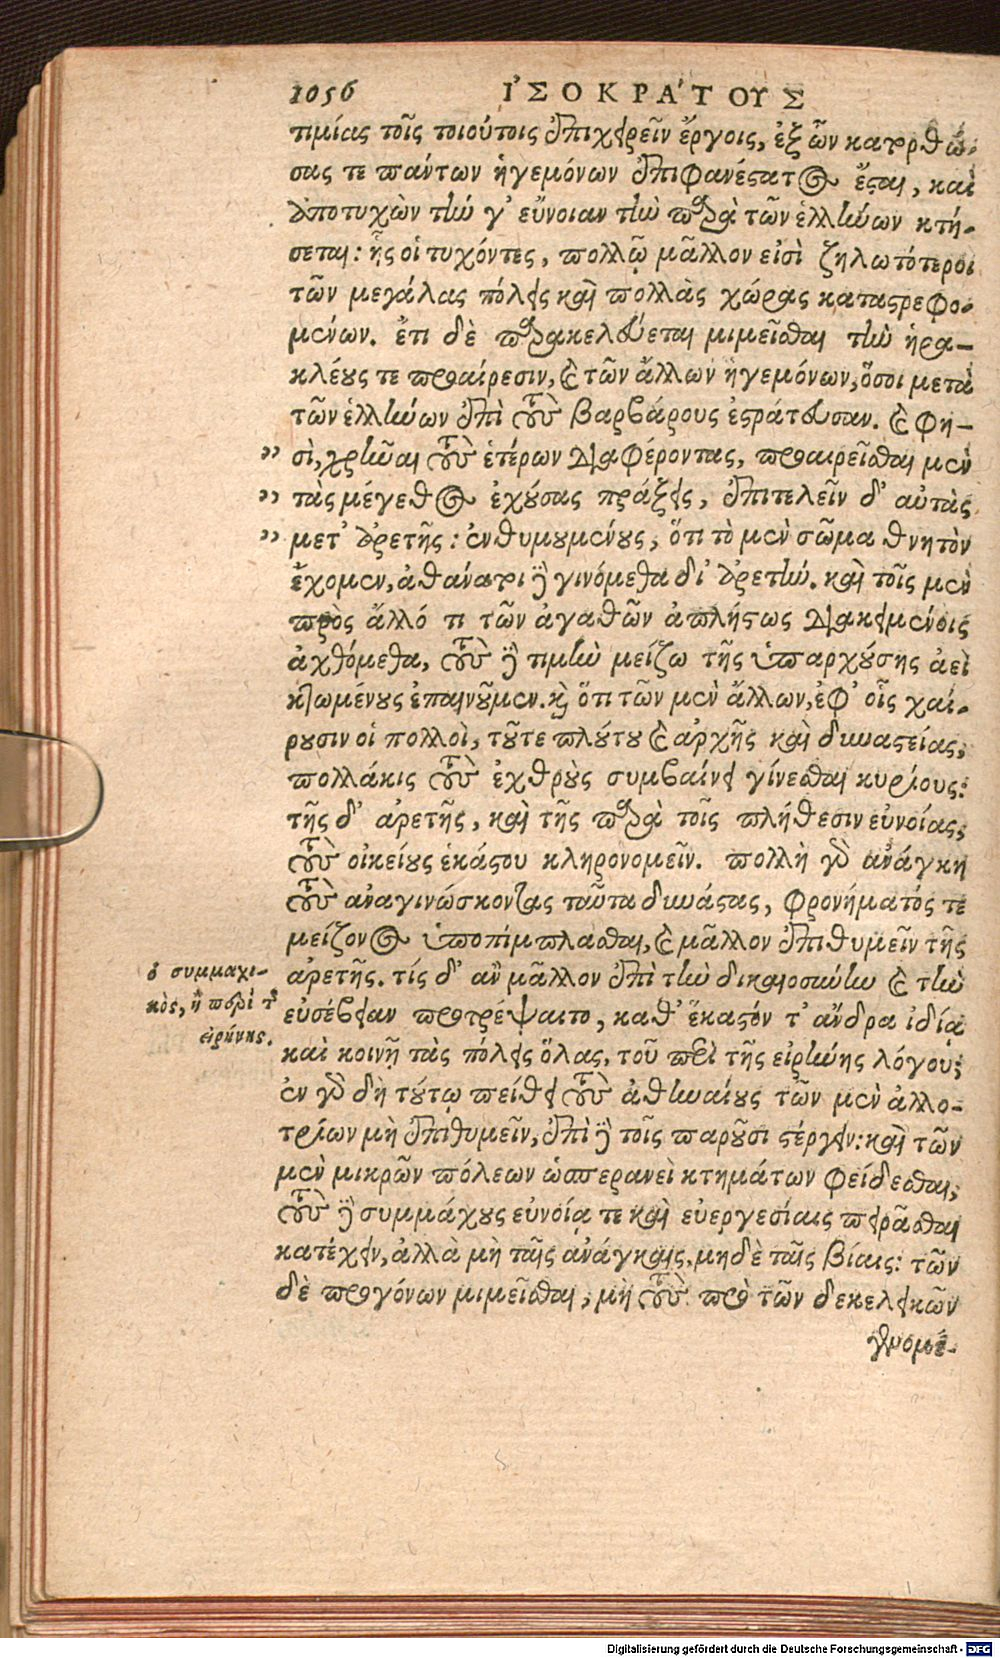 1056 ἸΣΟΚΡΆΤΟΥΣ
τιμίας τοῖς τοιούτοις ἐπιχειρεῖν ἔργοις, ἐξ ὧν κατορθώ-
σας τε πάντων ἡγεμόνων ἐπιφανέστατος ἔσται, καὶ
ἀποτυχὼν τήν γ' εὔνοιαν τὴν παρὰ τῶν ἑλλήνων κτή-
σεται: ἧς οἱ τυχόντες, πολλῷ μᾶλλον εἰσὶ ζηλωτότεροι
τῶν μεγάλας πόλεις καὶ πολλὰς χώρας καταστρεφο-
μένων. ἔτι δὲ παρακελεύεται μιμεῖσθαι τὴν ἡρα-
κλέους τε προαίρεσιν, καὶ τῶν ἄλλων ἡγεμόνων, ὅσοι μετὰ
τῶν ἑλλήνων ἐπὶ τοὺς βαρβάρους ἐστράτευσαν. καὶ φη-
„ σὶ, χρῆναι τοὺς ἑτέρων διαφέροντας, προαιρεῖσθαι μὲν
„ τὰς μέγεθος ἐχούσας πράξεις, ἐπιτελεῖν δ' αὐτὰς
„ μετ' ἀρετῆς: ἐνθυμουμένους, ὅτι τὸ μὲν σῶμα θνητὸν
ἔχομεν, ἀθάνατοι δὲ γινόμεθα δι' ἀρετήν. καὶ τοῖς μὲν
πρὸς ἄλλό τι τῶν ἀγαθῶν ἀπλήστως διακειμένοις
ἀχθόμεθα, τοὺς δὲ τιμὴν μείζω τῆς ὑπαρχούσης ἀεὶ
κτωμένους ἐπαινοῦμεν. καὶ ὅτι τῶν μὲν ἄλλων, ἐφ' οἷς χαί-
ρουσιν οἱ πολλοὶ, τοῦτε πλούτου καὶ ἀρχῆς καὶ δυναστείας,
πολλάκις τοὺς ἐχθροὺς συμβαίνει γίνεσθαι κυρίους:
τῆς δ' ἀρετῆς, καὶ τῆς παρὰ τοῖς πλήθεσιν εὐνοίας,
τοὺς οἰκείους ἑκάστου κληρονομεῖν. πολλὴ γὰρ ἀνάγκη
τοὺς ἀναγινώσκοντας ταῦτα δυνάστας, φρονήματός τε
μείζονος ὑποπίμπλασθαι, καὶ μᾶλλον ἐπιθυμεῖν τῆς
ὁ συμμαχι-
κὸς, ἢ περὶ τῆς
εἰρήνης.
ἀρετῆς. τίς δ' ἂν μᾶλλον ἐπὶ τὴν δικαιοσύνην καὶ τὴν
εὐσέβειαν προτρέψαιτο, καθ' ἕκαστόν τ' ἄνδρα ἰδίᾳ
καὶ κοινῇ τὰς πόλεις ὅλας, τοῦ περὶ τῆς εἰρήνης λόγου;
ἐν γὰρ δὴ τούτῳ πείθει τοὺς ἀθηναίους τῶν μὲν ἀλλο-
τρίων μὴ ἐπιθυμεῖν, ἐπὶ δὲ τοῖς παροῦσι στέργειν: καὶ τῶν
μὲν μικρῶν πόλεων ὡσπερανεὶ κτημάτων φείδεσθαι,
τοὺς δὲ συμμάχους εὐνοίᾳ τε καὶ εὐεργεσίαις πειρᾶσθαι
κατέχειν, ἀλλὰ μὴ ταῖς ἀνάγκαις, μηδὲ ταῖς βίαις: τῶν
δὲ προγόνων μιμεῖσθαι, μὴ τοὺς πρὸ τῶν δεκελεικῶν
γενομέ-
Digitalisierung gefördert durch die Deutsche Forschungsgemeinschaft - DFG